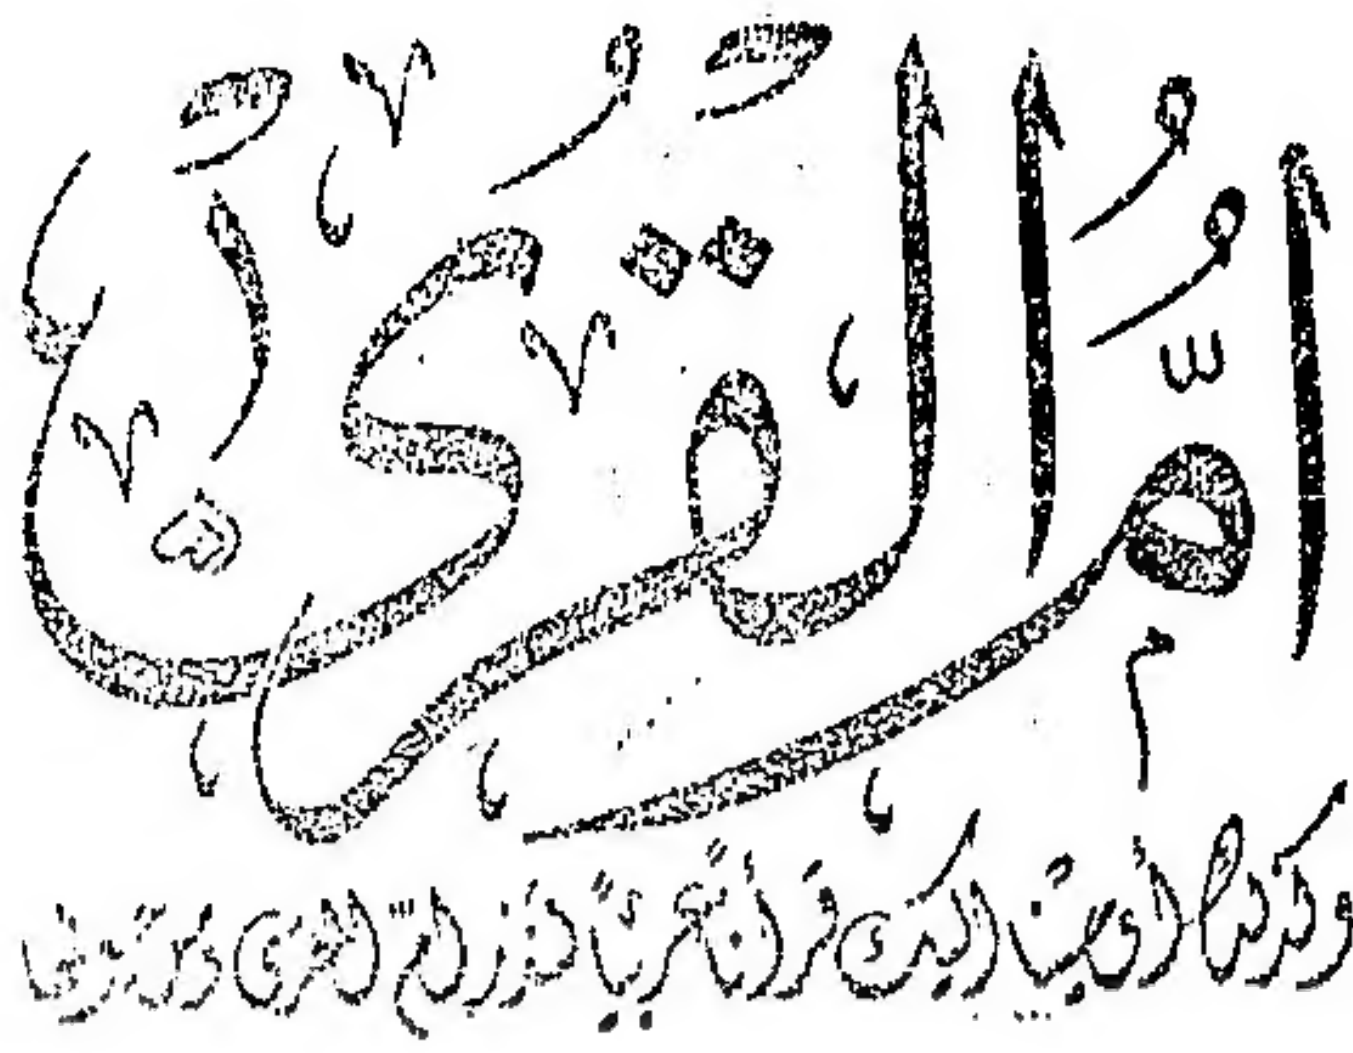 أُمُّ الْقُرَى
وكذلك أوحينا إليك قرآنًا عربيًّا لتنذر أمّ القرى ومن حولها